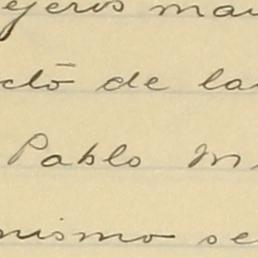 ejeros man
ctō de la
Pablo M
nismo se